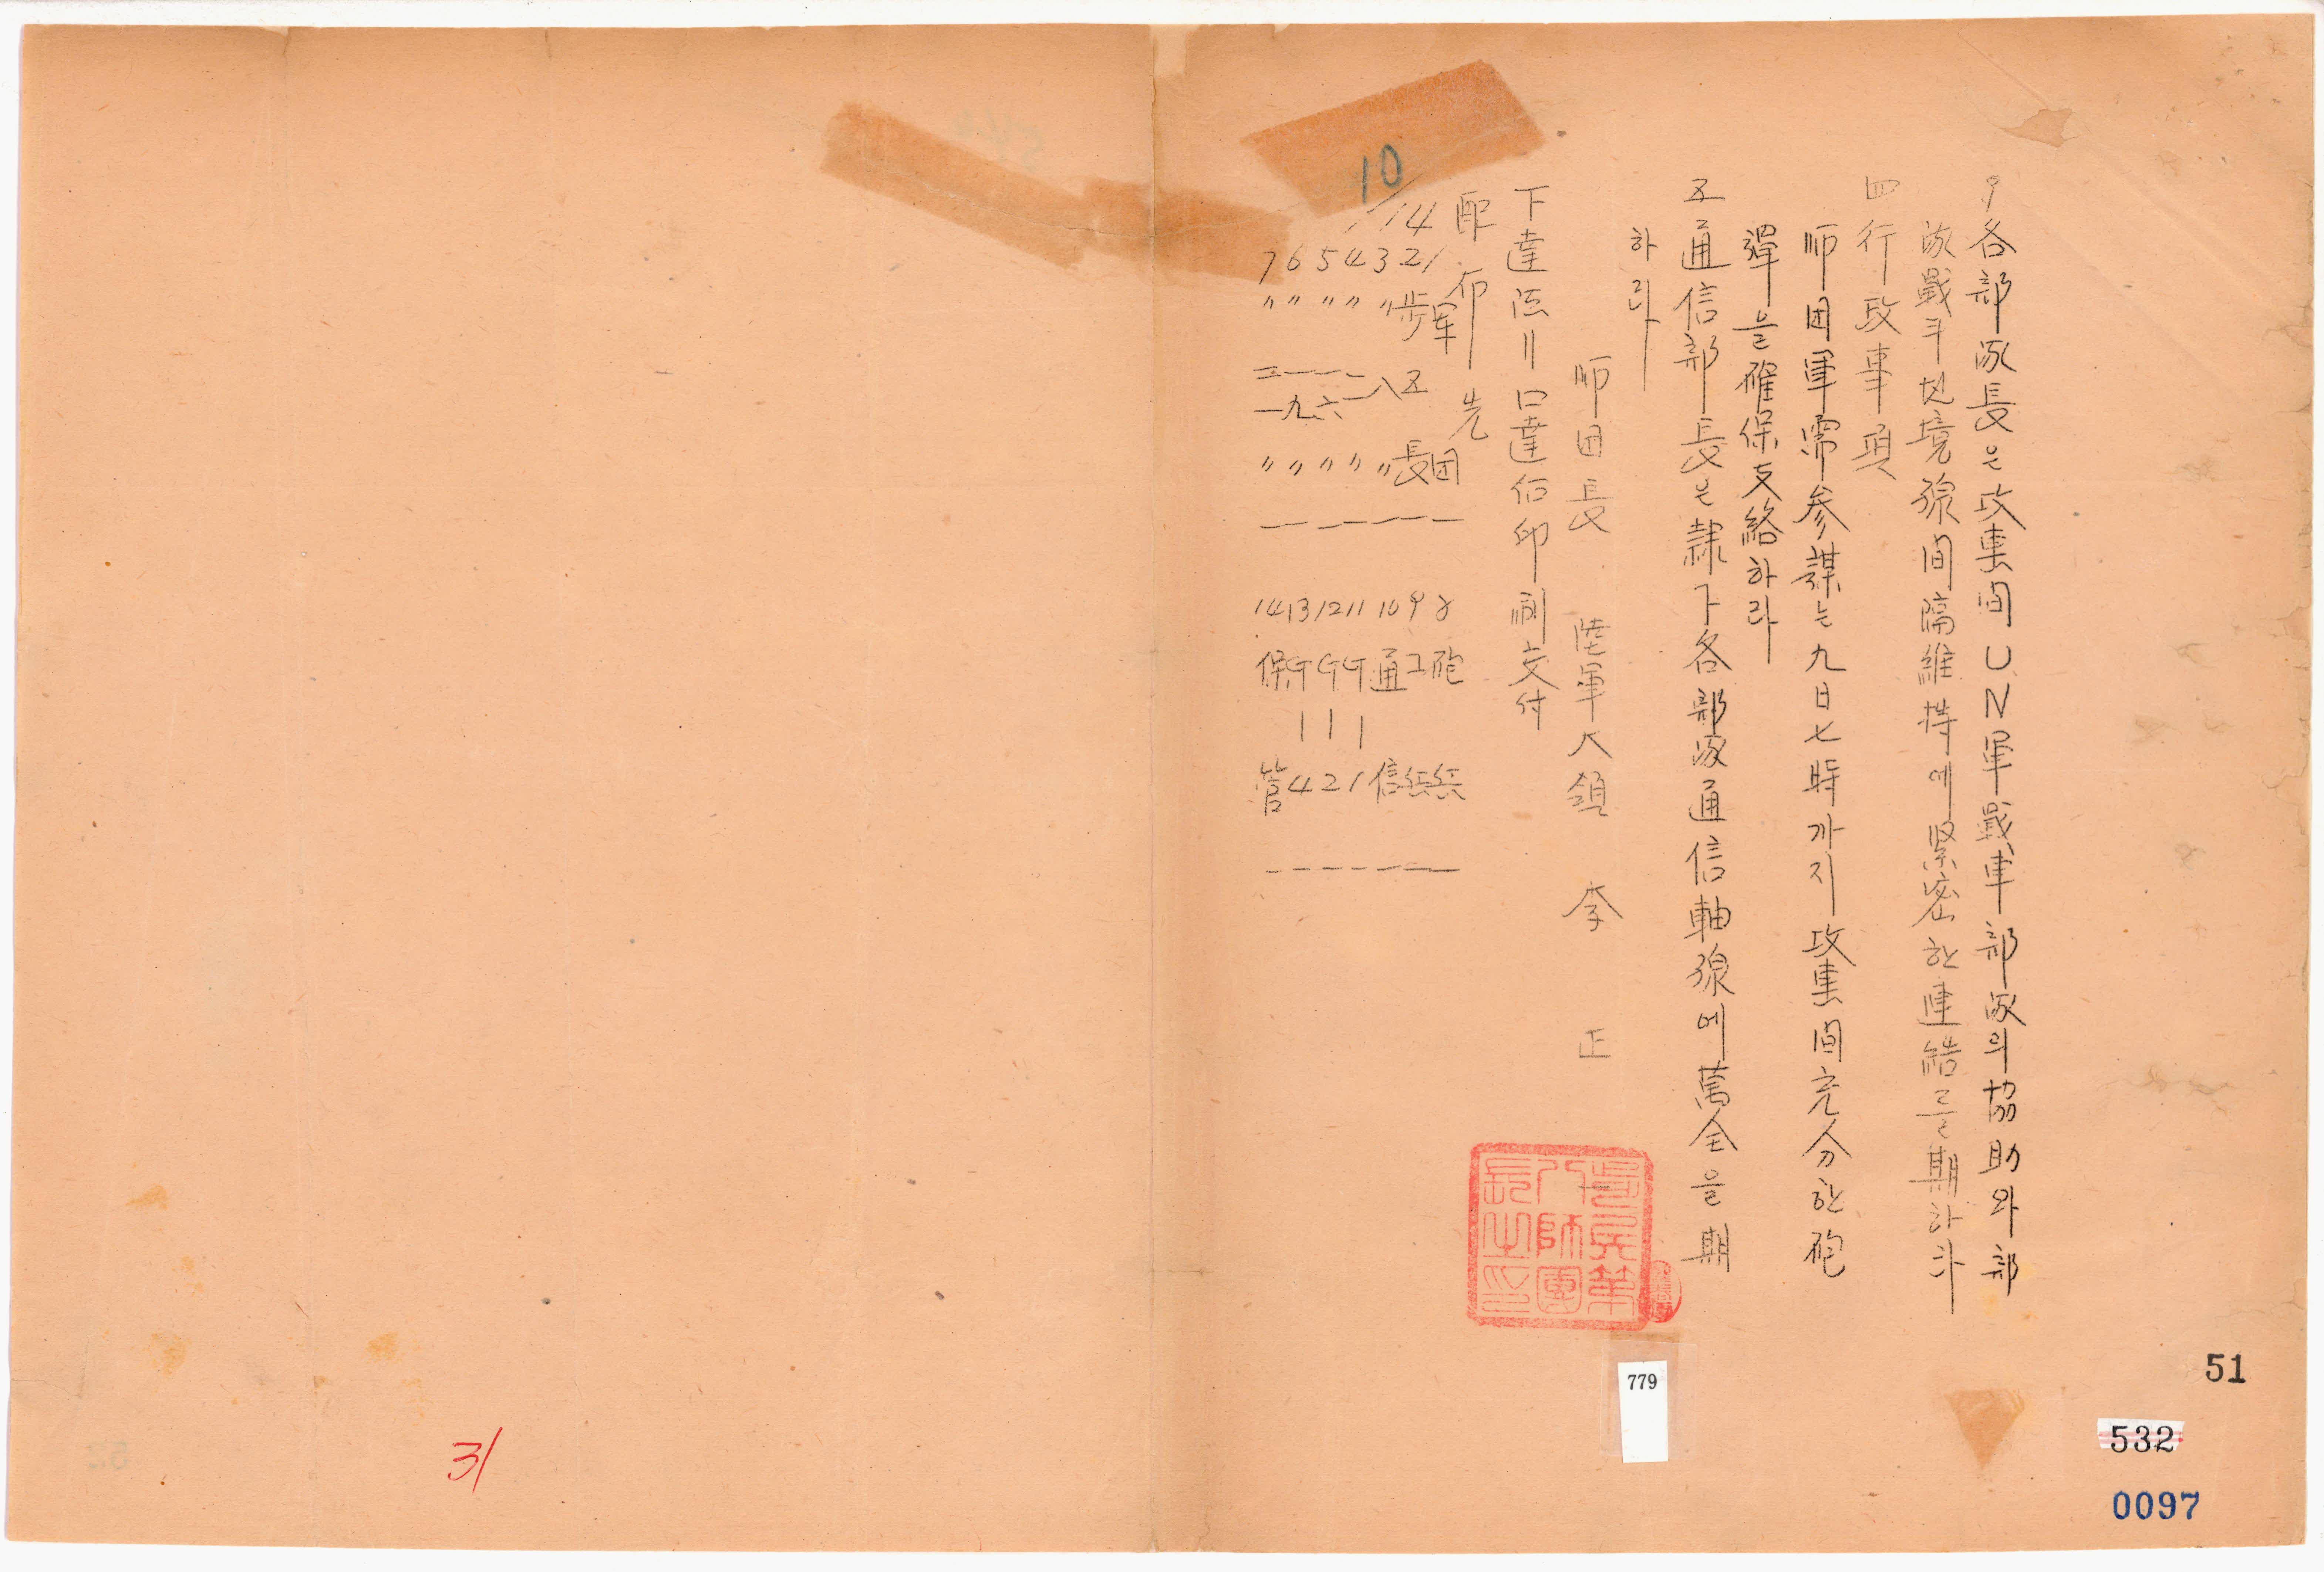 9 各部隊長은 攻擊間 UN軍戰車部隊의 協助와 部
隊戰斗地境線間隔維持에 緊密한 連結를 期하라
四 行政事項
師団軍需参謀는 九日七時까지 攻擊間 充分한 砲
彈을 確保支給하라
五 通信部長은 隷下各部隊通信軸線에 萬全을 期
하라
師団長 陸軍大領 李 正 一
下達法=口達后印刷交付
配布先
1 军団 一
2 步五長 一
3 〃八〃 一
4 〃一一〃 一
5 〃一六〃 一
6 〃一九〃 一
7 〃二一〃 一
8 砲兵 一
9 工兵 一
10 通信 一
11 G-1 一
12 G-2 一
13 G-4 一
14 保管 一
10
/14
第
八師團
長之印
779
51
532
0097
31